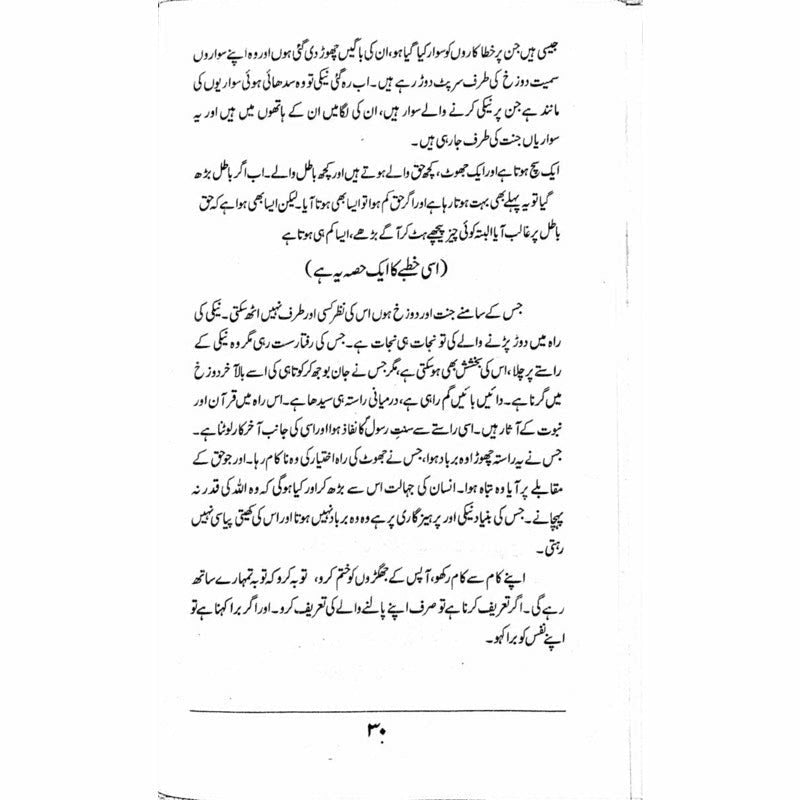 جیسی ہیں جن پر خطا کاروں کو سوار کیا گیا ہو، ان کی باگیں چھوڑ دی گئی ہوں اور وہ اپنے سواروں
سمیت دوزخ کی طرف سرپٹ دوڑ رہے ہیں۔ اب رہ گئی نیکی تو وہ سدھائی ہوئی سواریوں کی
مانند ہے جن پر نیکی کرنے والے سوار ہیں، ان کی لگامیں ان کے ہاتھوں میں ہیں اور یہ
سواریاں جنت کی طرف جا رہی ہیں۔
ایک سچ ہوتا ہے اور ایک جھوٹ، کچھ حق والے ہوتے ہیں اور کچھ باطل والے۔ اب اگر باطل بڑھ
گیا تو یہ پہلے بھی بہت ہوتا رہا ہے اور اگر حق کم ہوا تو ایسا بھی ہوتا آیا۔ لیکن ایسا بھی ہوا ہے کہ حق
باطل پر غالب آیا البتہ کوئی چیز پیچھے ہٹ کر آگے بڑھے، ایسا کم ہی ہوتا ہے
(اسی خطبے کا ایک حصہ یہ ہے)
جس کے سامنے جنت اور دوزخ ہوں اس کی نظر کسی اور طرف نہیں اٹھ سکتی۔ نیکی کی
راہ میں دوڑ پڑنے والے کی تو نجات ہی نجات ہے۔ جس کی رفتار سست رہی مگر وہ نیکی کے
راستے پر چلا، اس کی بخشش بھی ہو سکتی ہے، مگر جس نے جان بوجھ کر کوتاہی کی اسے بالآخر دوزخ
میں گرنا ہے۔ دائیں بائیں گم راہی ہے، درمیانی راستہ ہی سیدھا ہے۔ اس راہ میں قرآن اور
نبوت کے آثار ہیں۔ اسی راستے سے سنتِ رسولؐ کا نفاذ ہوا اور اسی کی جانب آخر کار لوٹنا ہے۔
جس نے یہ راستہ چھوڑا وہ برباد ہوا، جس نے جھوٹ کی راہ اختیار کی وہ ناکام رہا۔ اور جو حق کے
مقابلے پر آیا وہ تباہ ہوا۔ انسان کی جہالت اس سے بڑھ کر اور کیا ہوگی کہ وہ اللہ کی قدر نہ
پہچانے۔ جس کی بنیاد نیکی اور پرہیزگاری پر ہے وہ وہ برباد نہیں ہوتا اور اس کی کھیتی پیاسی نہیں
رہتی۔
اپنے کام سے کام رکھو، آپس کے جھگڑوں کو ختم کرو، توبہ کرو کہ توبہ تمہارے ساتھ
رہے گی۔ اگر تعریف کرنا ہے تو صرف اپنے پالنے والے کی تعریف کرو۔ اور اگر برا کہنا ہے تو
اپنے نفس کو برا کہو۔
۳۰